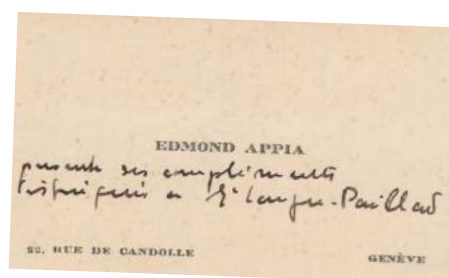 EDMOND APPIA
présente ses compliments
à Paillard
22, RUE DE CANDOLLE
GENÈVE